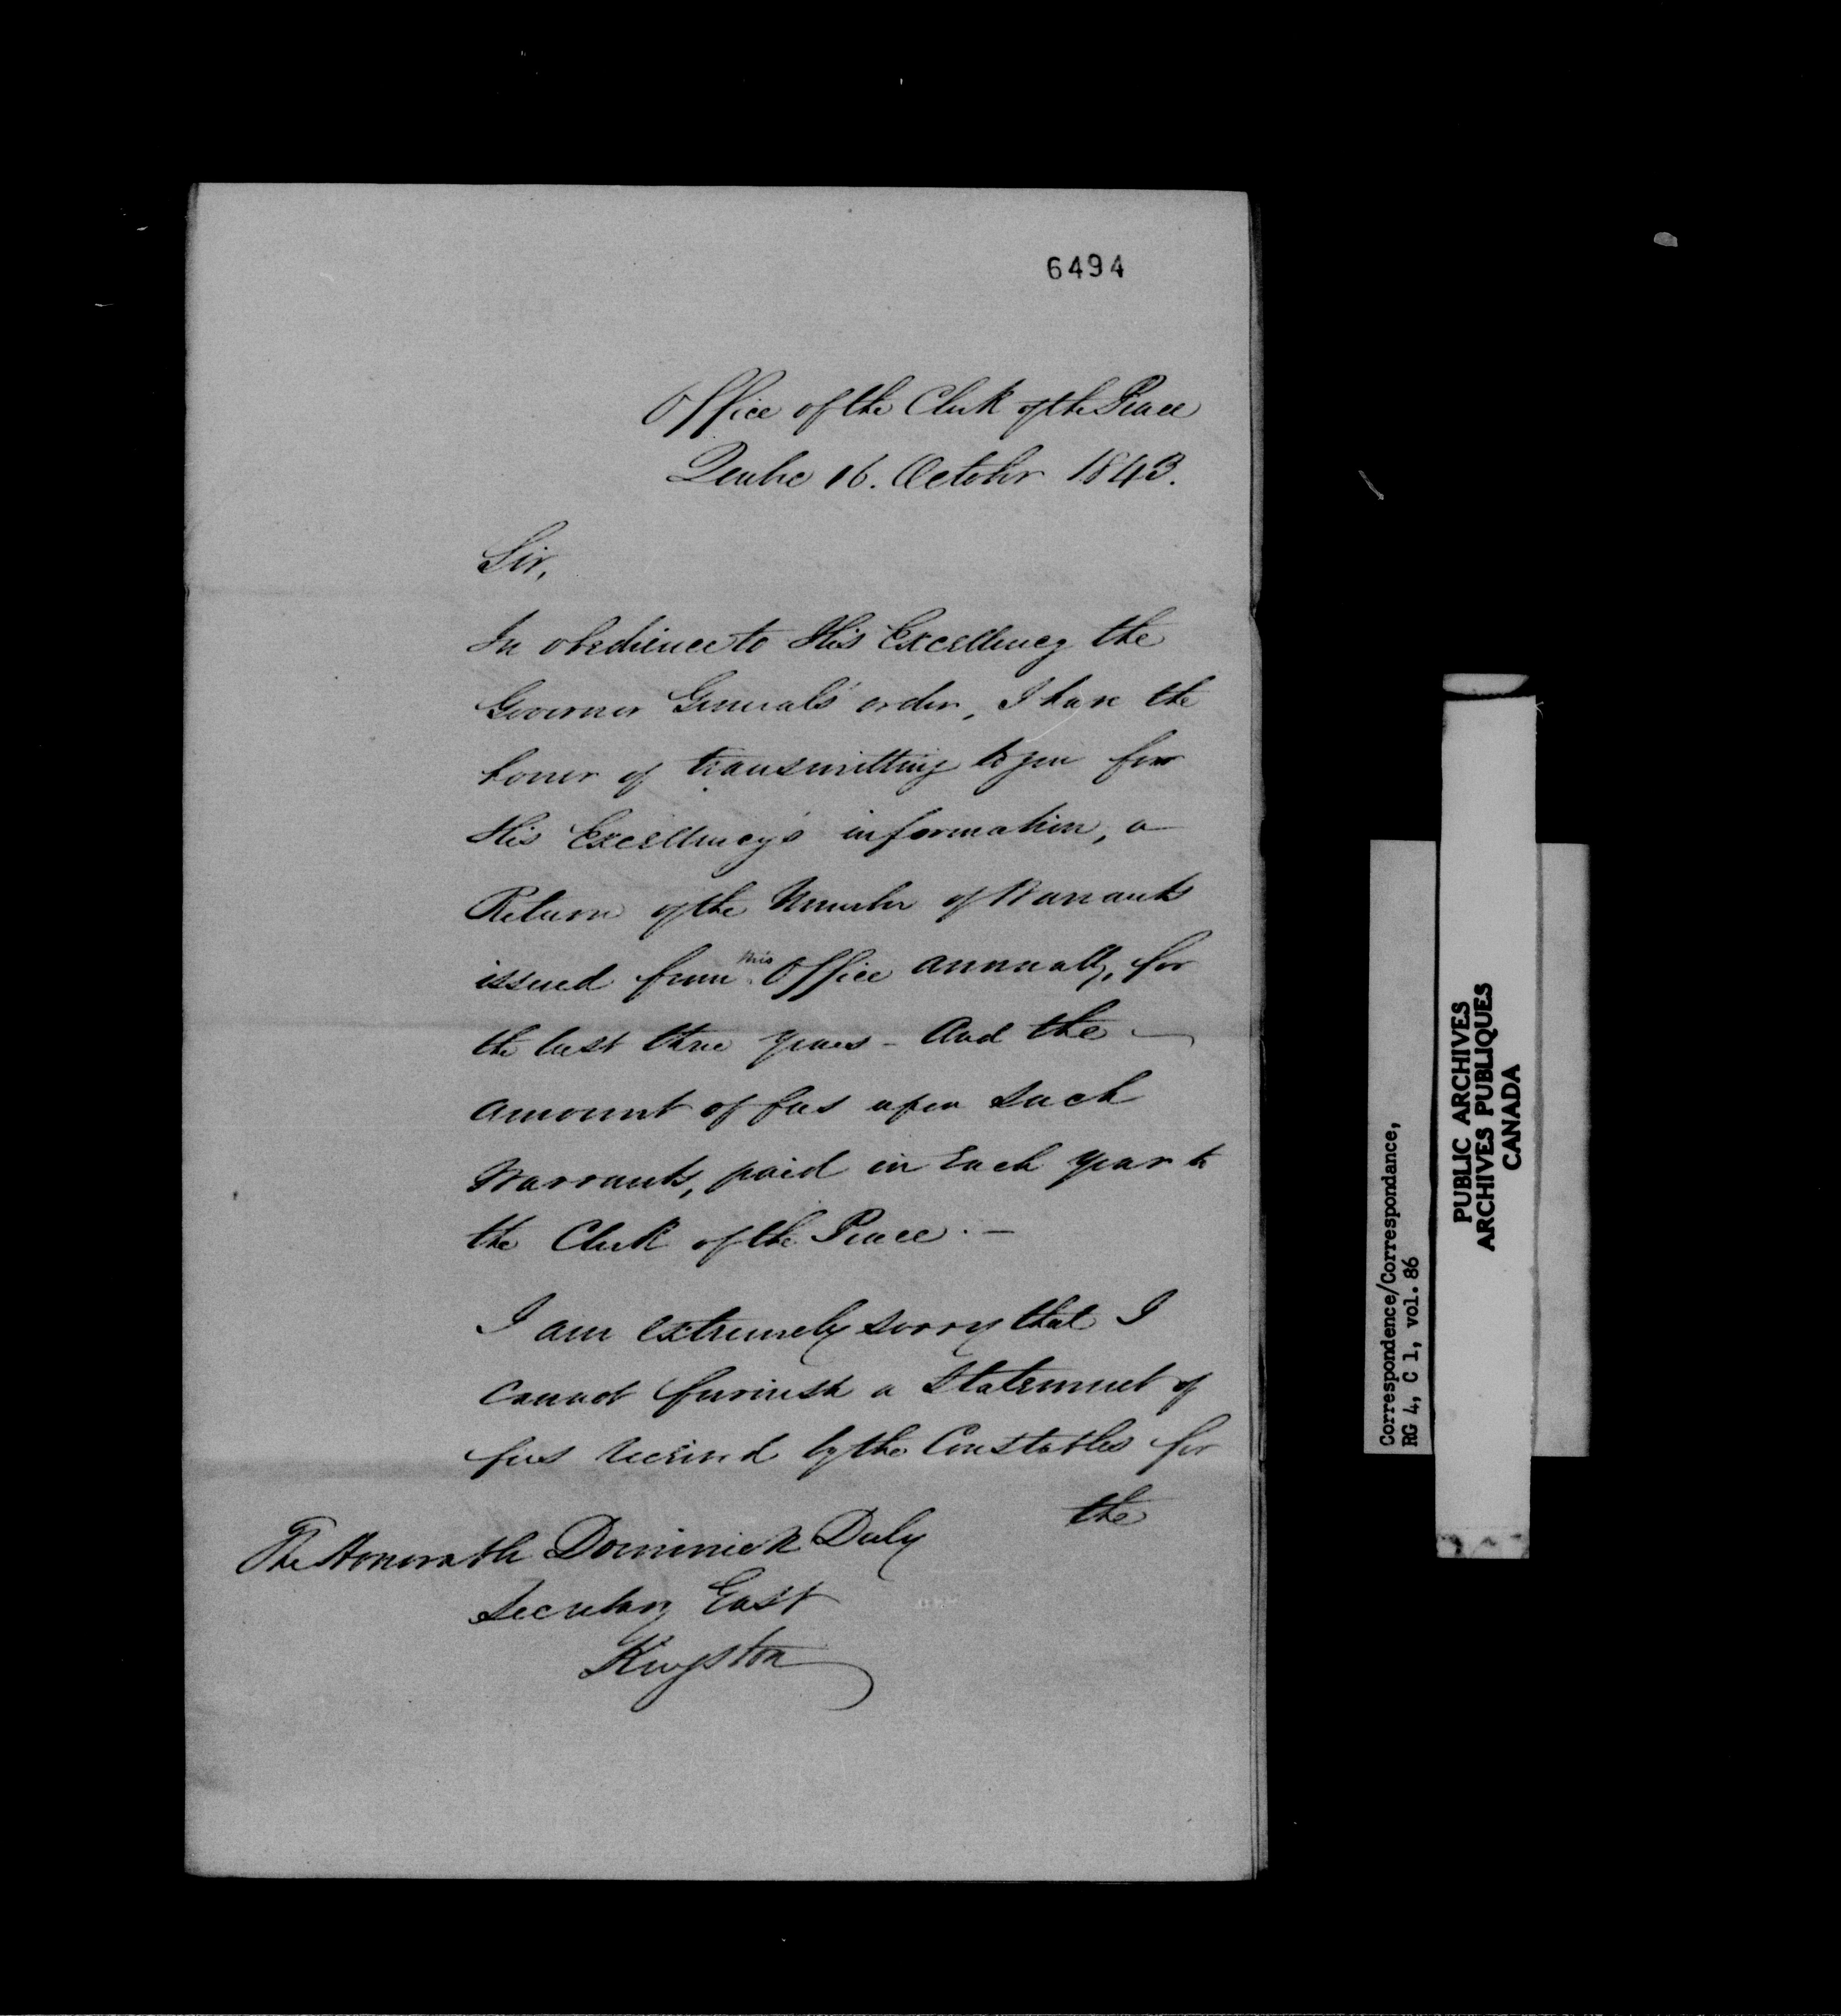 6494
Office of the Clerk of the Peace
Quebec 16. October 1843.
Sir,
In obedience to His Excellency the
Governor General's order, I have the
honor of transmitting to you for
His Excellency's information, a
Return of the Number of Warrants
issued from this Office annually, for
the last three years - And the
amount of fees upon such
Warrants, paid in Each year to
the Clerk of the Peace. -
I am extremely sorry that I
Cannot furnish a Statement of
fees received by the Constables for
the
The Honorable Dominick Daly
Secretary East
Kingston
Correspondence/Correspondance,
RG 4, C 1, vol. 86
PUBLIC ARCHIVES
ARCHIVES PUBLIQUES
CANADA